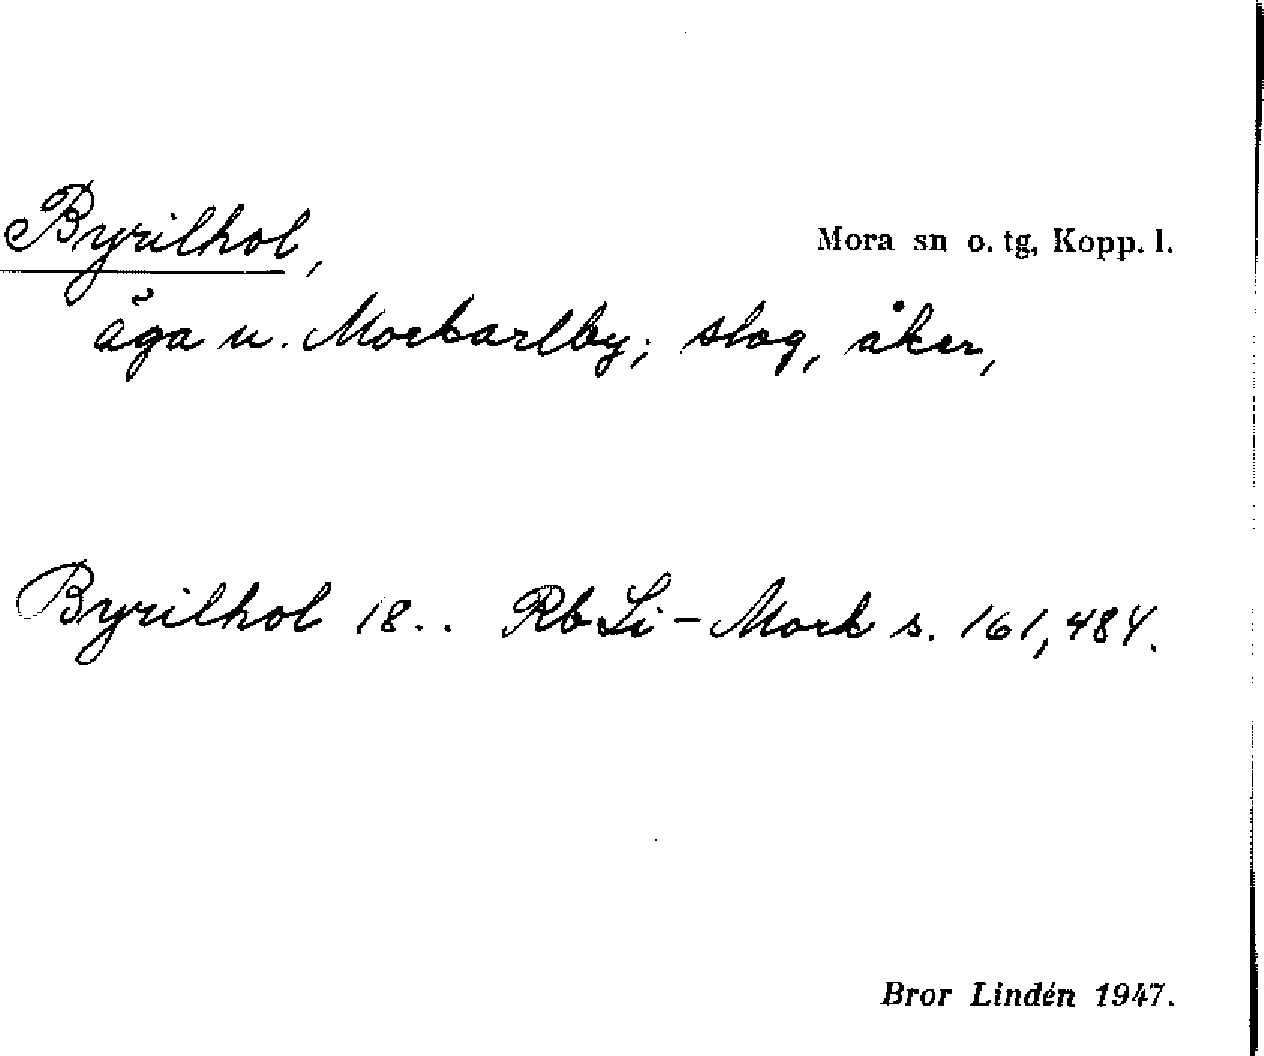 Byrilhol,
Mora sn o. tg, Kopp. l.
äga u. Morkarlby; slog, åker,
Byrilhol 18.. Rb Li - Mork s. 161, 484.
Bror Lindén 1947.